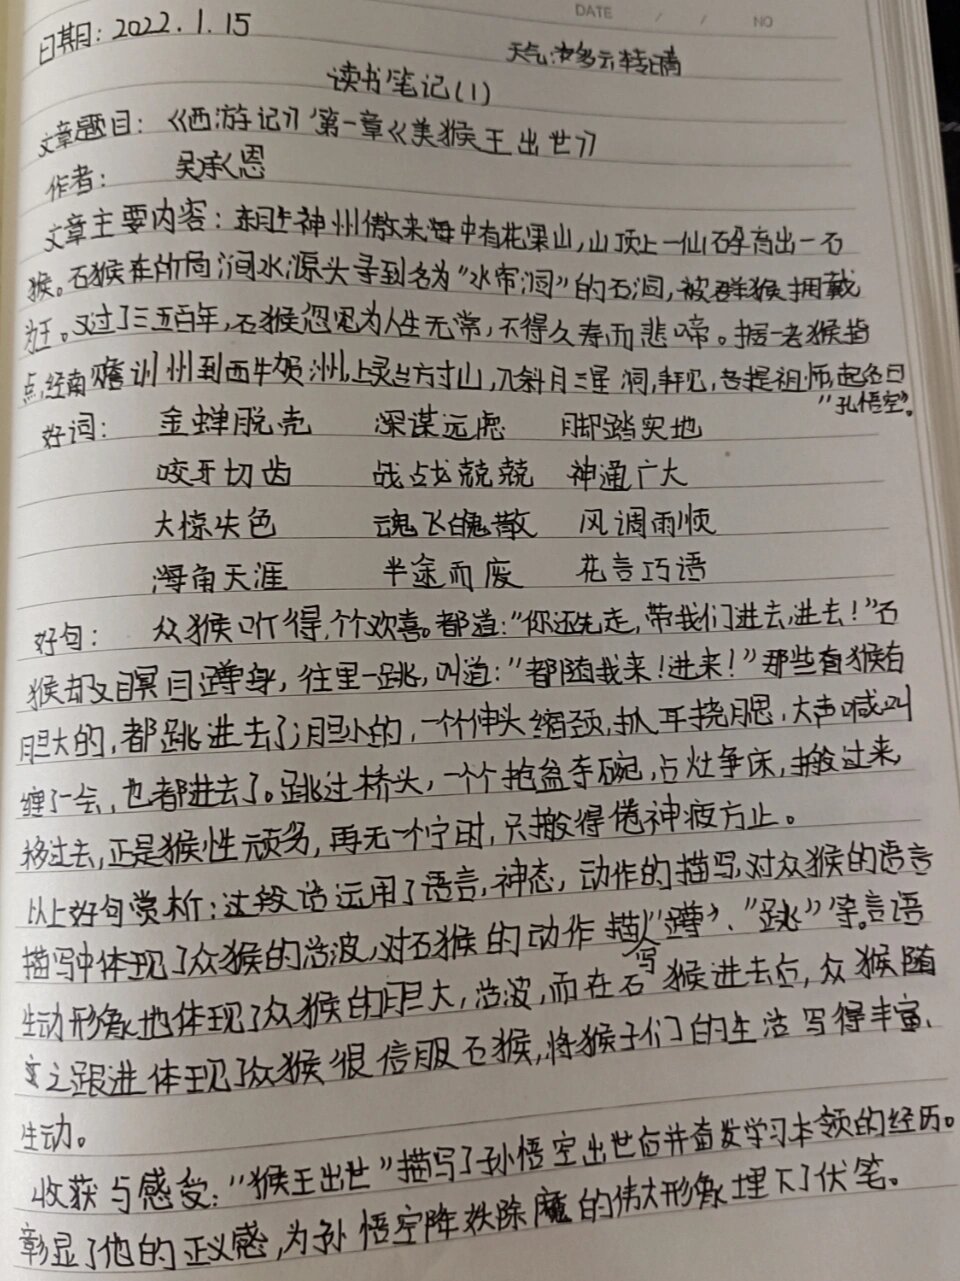 DATE / / NO
日期：2022.1.15
天气：多云转晴
读书笔记(1)
文章题目：《西游记》第一章《美猴王出世》
作者：吴承恩
文章主要内容：东胜神州傲来海中有花果山，山顶上一仙石孕育出一石
猴。石猴在所居涧水源头寻到名为“水帘洞”的石洞，被群猴拥戴
为王。又过了三五百年，石猴忽见为人生无常，不得久寿而悲啼。据一老猴指
点，经南赡训州到西牛贺洲，上灵台方寸山，入斜月三星洞，拜见菩提祖师，起名曰
“孔悟空”。
好词：金蝉脱壳 深谋远虑 脚踏实地
咬牙切齿 战战兢兢 神通广大
大惊失色 魂飞魄散 风调雨顺
海角天涯 半途而废 花言巧语
好句：众猴听得，个个欢喜。都道：“你还先走，带我们进去，进去！”石
猴却又瞑目蹲身，往里一跳，叫道：“都随我来！进来！”那些猴有
胆大的，都跳进去了；胆小的，一个个伸头缩颈，抓耳挠腮，大声喊叫
缠了一会，也都进去了。跳过桥头，一个个抢盆夺碗，占灶争床，搬过来，
移过去，正是猴性顽劣，再无一个宁时，只搬得倦神疲方止。
以上好句赏析：这段话运用了语言，神态，动作的描写，对众猴的语言
描写中体现了众猴的活波，对石猴的动作描写“蹲”、“跳”等言语
生动形象地体现了众猴的胆大，活波，而在石猴进去后，众猴随
之跟进体现了众猴很信服石猴，将猴子们的生活写得丰富、
生动。
收获与感受：“猴王出世”描写了孙悟空出世后并奋发学习本领的经历。
彰显了他的正义感，为孙悟空降妖除魔的伟大形象埋下了伏笔。